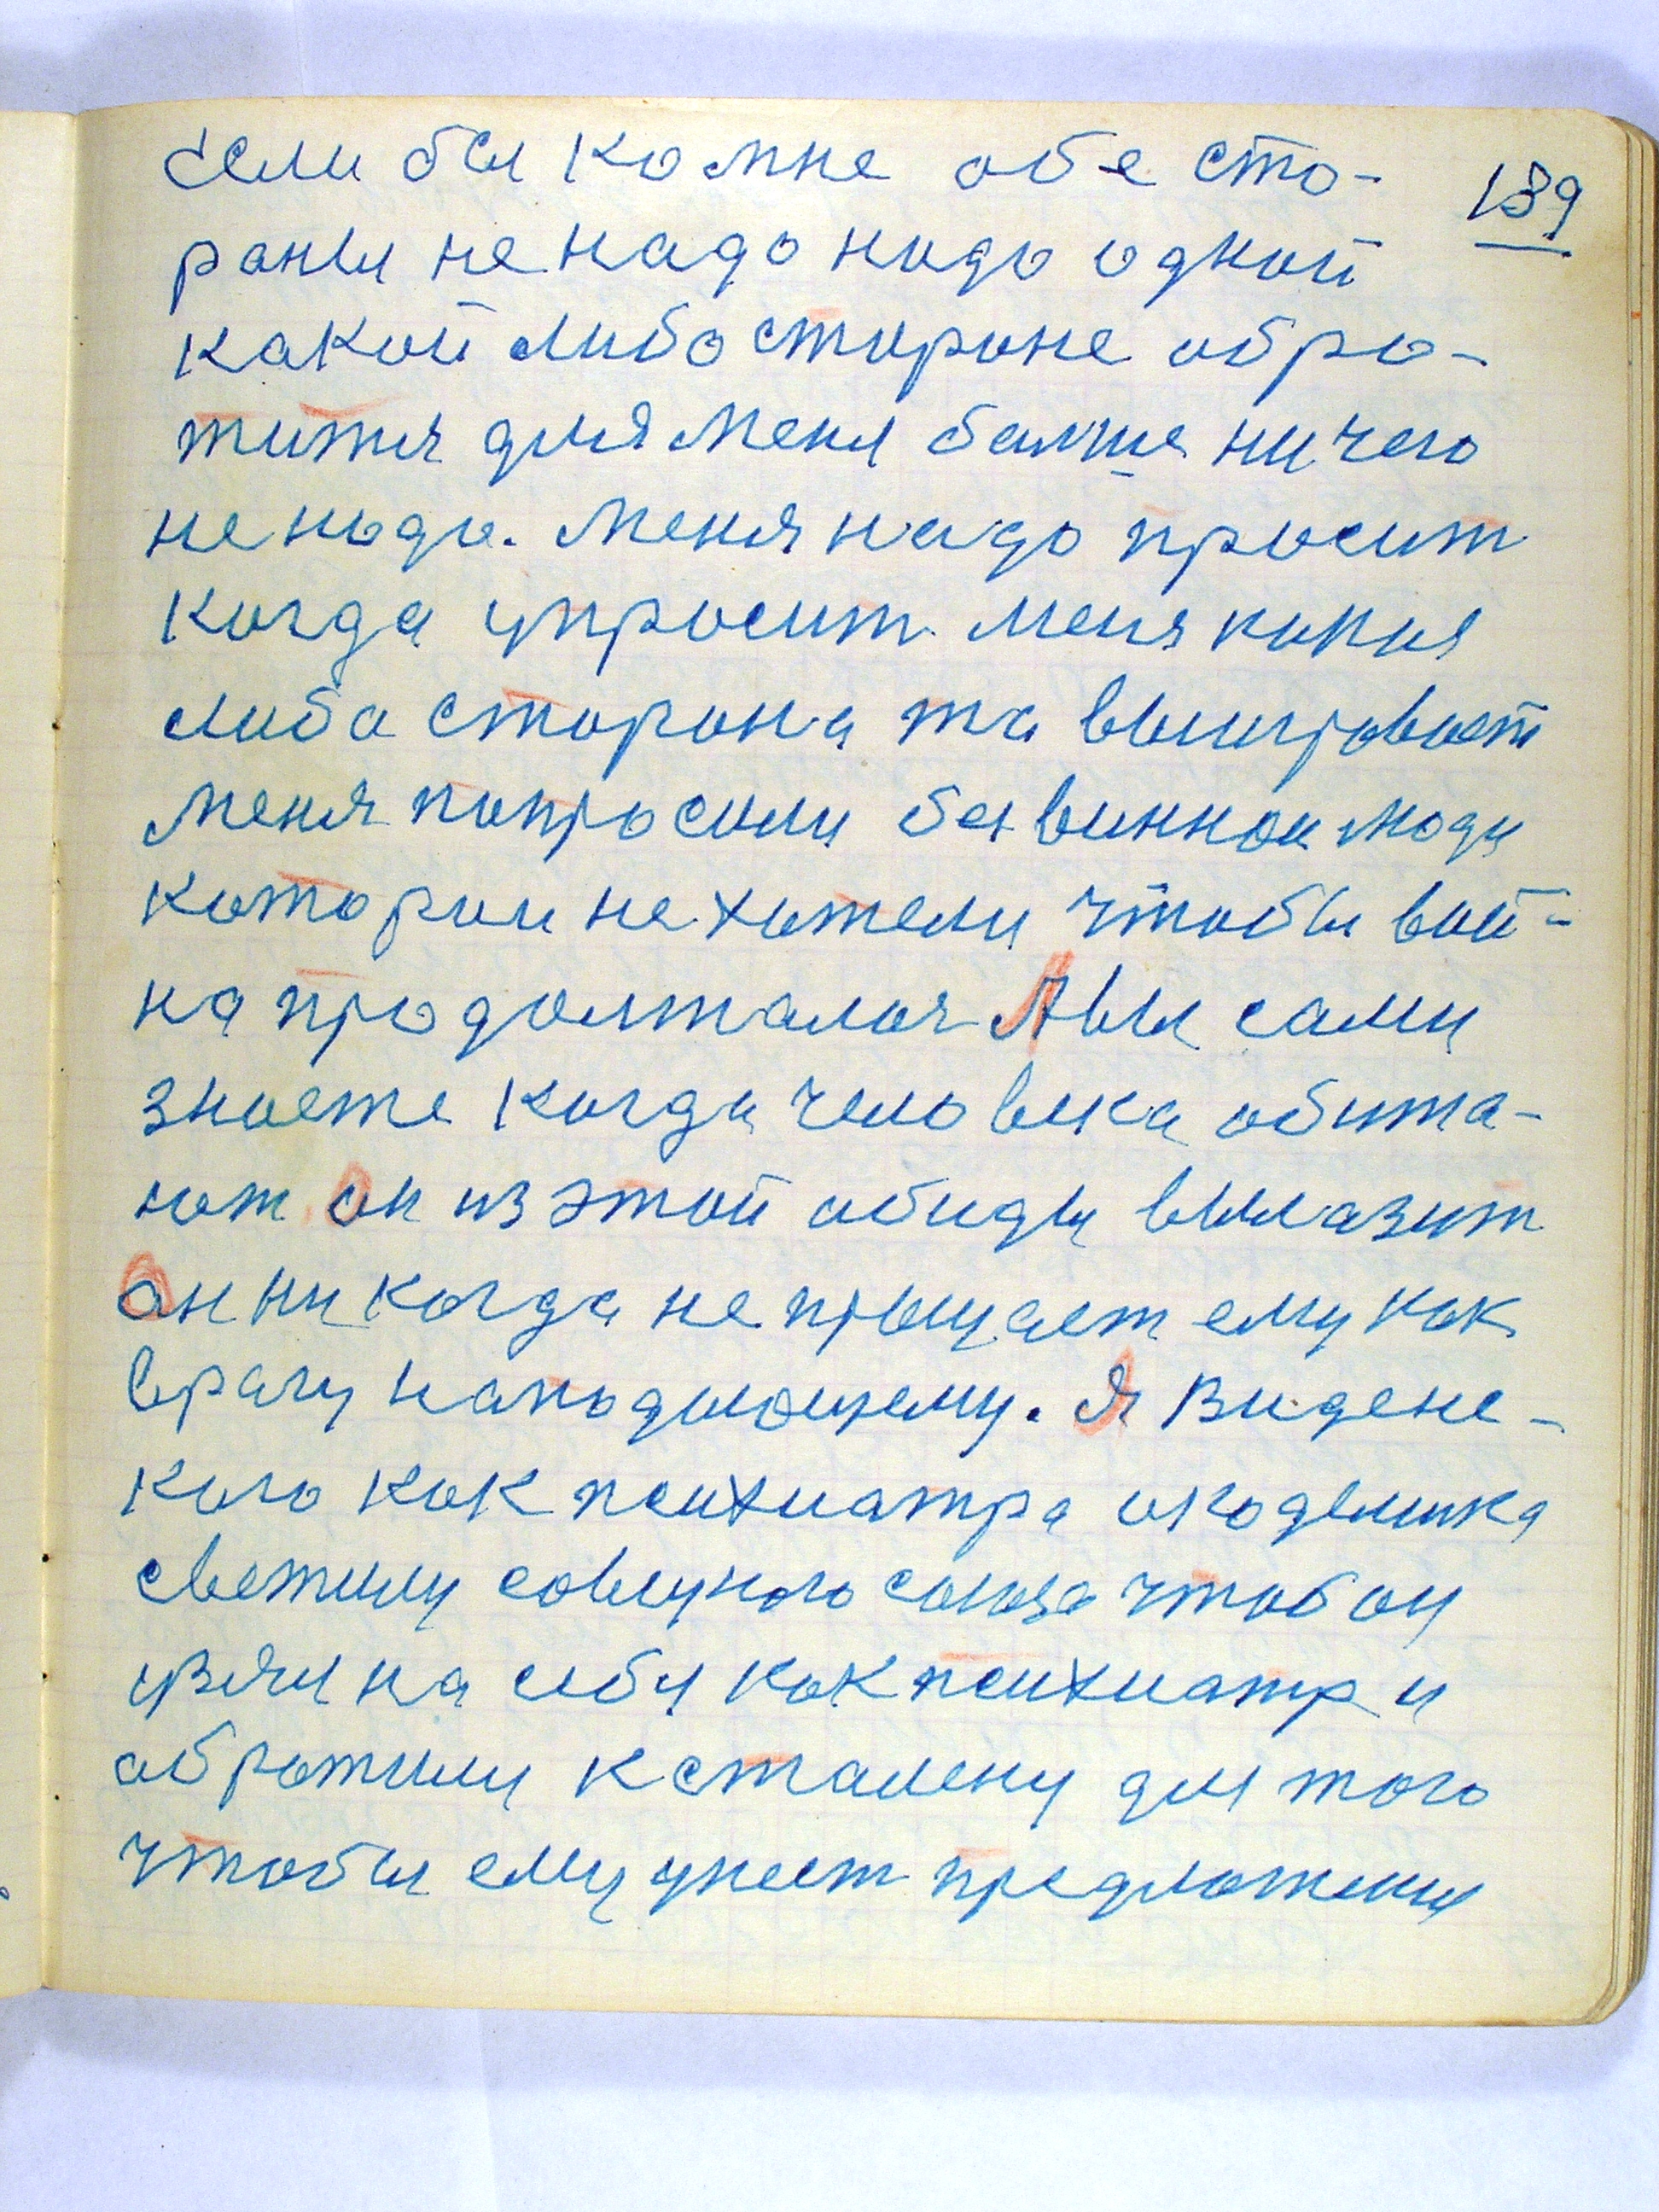 Если бы ко мне обе сто-
189
роны не надо надо одной
какой либо стороне обра-
титя для меня балше ничего
не надо. Меня надо просит
когда упросит меня какая
либо сторона та выигровает
меня попросили безвиннои люди
которои не хотели чтобы вой-
на продолжалося А вы сами
знаете когда человека обижа-
ют он из этой обиды вылазит
он никогда не прощает ему как
врагу нападающему. Я Виденс-
кого как психиатра окодемика
светилу совецкого союза чтоб он
узял на себя как психиатр и
обротили к сталену для того
чтобы ему унест предложения